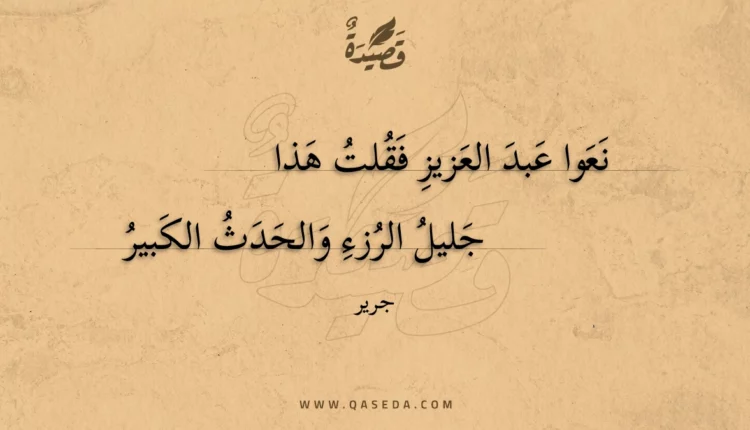 قَصِيْدَةٌ
نَعَوا عَبدَ العَزيزِ فَقُلتُ هَذا
جَليلُ الرُزءِ وَالحَدَثُ الكَبيرُ
جرير
WWW.QASEDA.COM